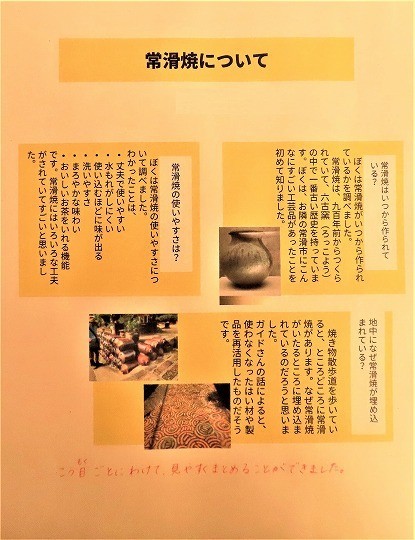 常滑焼について
常滑焼はいつから作られて
いる?
ぼくは常滑焼がいつから作られ
ているかを調べました。
常滑焼は、九百年前からつくら
れていて、六古窯(ろっこよう)
の中で一番古い歴史を持っていま
す。ぼくは、お隣の常滑市にこん
なにすごい工芸品があったことを
初めて知りました。
常滑焼の使いやすさは?
ぼくは常滑焼の使いやすさにつ
いて調べました。
わかったことは、
・丈夫で使いやすい
・水もれがしにくい
・使い込むほどに味が出る
・洗いやすさ
・まろやかな味わい
・おいしいお茶をいれる機能
です。常滑焼にはいろいろな工夫
がされていてすごいと思いまし
た。
地中になぜ常滑焼が埋め込
まれている?
焼き物散歩道を歩いてい
ると、ところどころに常滑
焼があります。なぜ常滑焼
がいたるところに埋め込ま
れているのだろうと思いま
した。
ガイドさんの話によると、
使わなくなったはい材や製
品を再活用したものだそう
です。
もく
こう目ごとにわけて、見やすくまとめることができました。